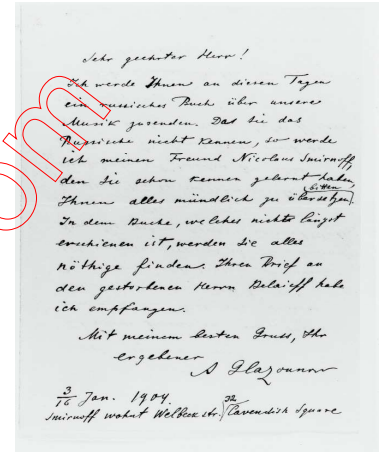 Sehr geehrter Herr!
Ich werde Ihnen an diesen Tagen
ein russisches Buch über unsere
Musik zusenden. Da Sie das
Russische nicht kennen, so werde
ich meinen Freund Nicolaus Smirnoff,
den Sie schon kennen gelernt haben,
bitten
Ihnen alles mündlich zu übersetzen.
In dem Buche, welches nicht längst
erschienen ist, werden Sie alles
nöthige finden. Ihren Brief an
den gestorbenen Herrn Belaieff habe
ich empfangen.
Mit meinem besten Gruss, Ihr
ergebener
A Glazounow
3/16 Jan. 1904.
Smirnoff wohnt Welbeck str. 32 Cavendish Square
om